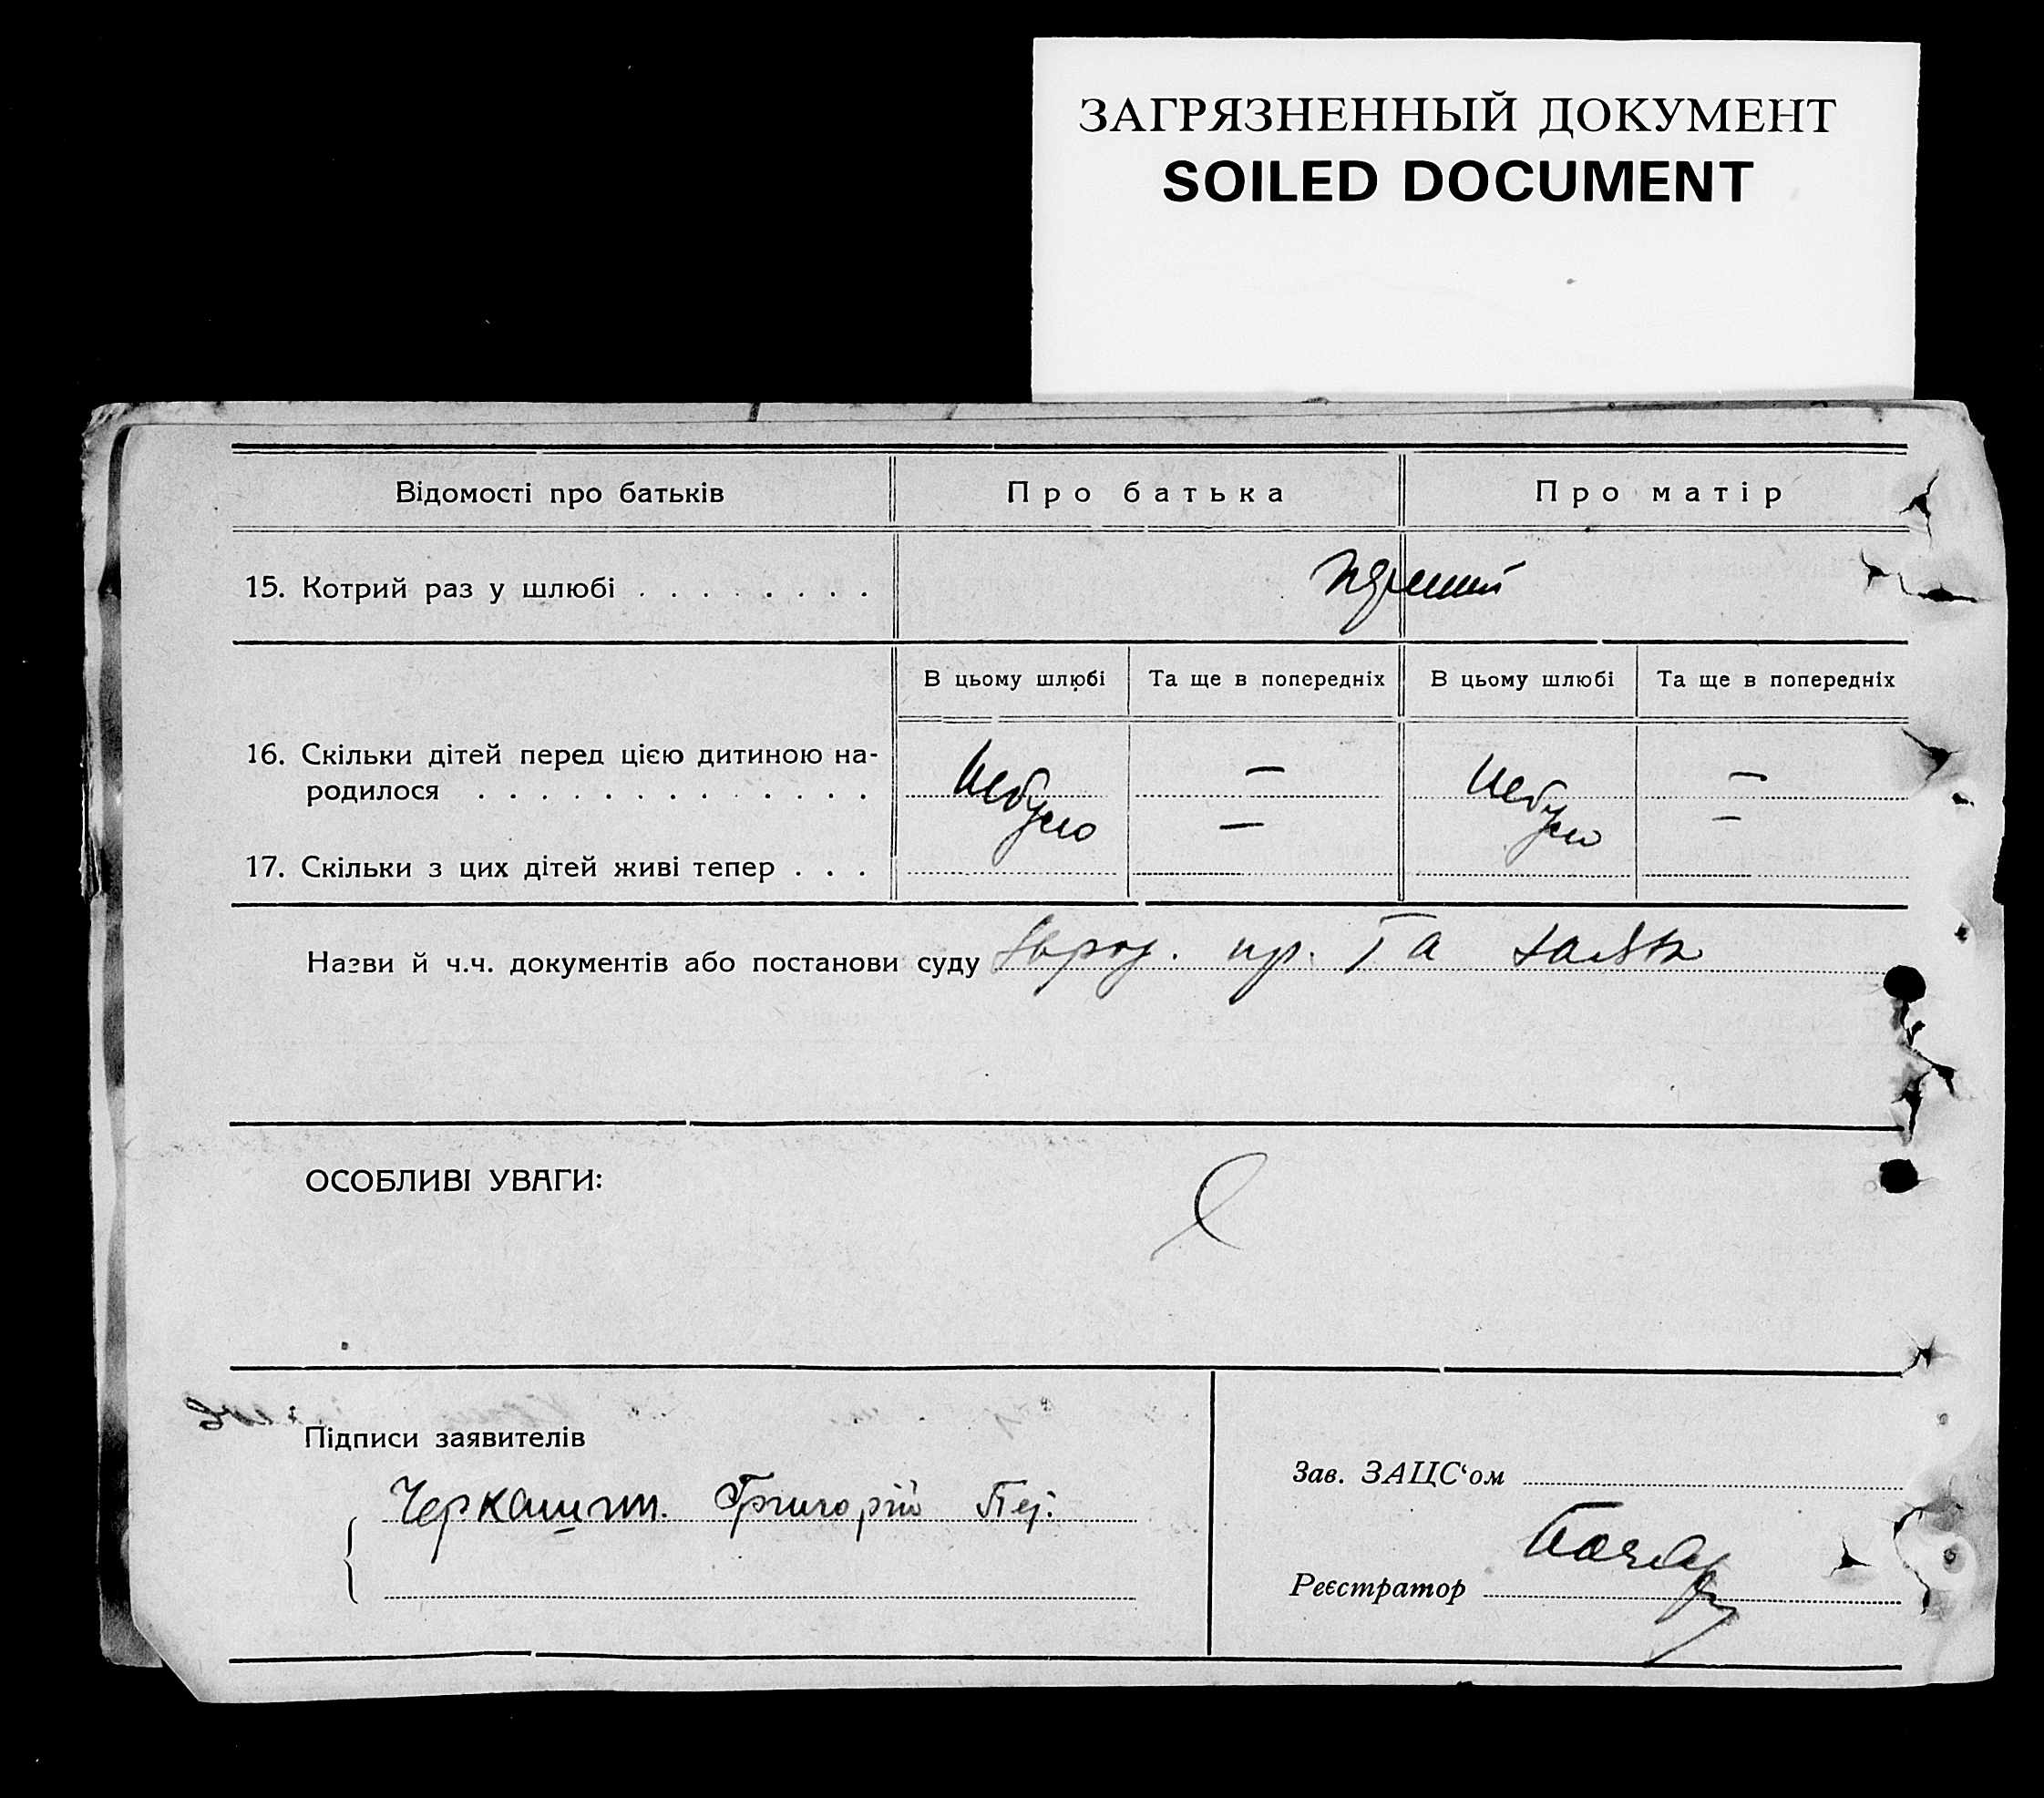 ЗАГРЯЗНЕННЫЙ ДОКУМЕНТ
SOILED DOCUMENT
Відомості про батьків Про батька Про матір
15. Котрий раз у шлюбі . . . . . . . .
В цьому шлюбі Та ще в попередніх В цьому шлюбі Та ще в попередніх
16. Скільки дітей перед цією дитиною на-
родилося . . . . . . . . . . . . . небуло — небуло —
— —
17. Скільки з цих дітей живі тепер . . .
Назви й ч.ч. документів або постанови суду пр. Та
ОСОБЛИВІ УВАГИ:
Підписи заявителів
Зав. ЗАЦС‘ом
Григорій
Реєстратор